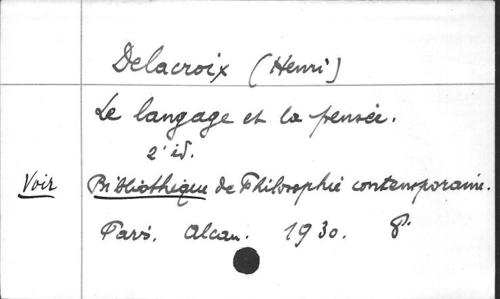 Delacroix (Henri)
Le langage et la pensée.
2' éd.
Voir Bibliothèque de Philosophie contemporaine.
Paris. Alcan. 1930. 8°.